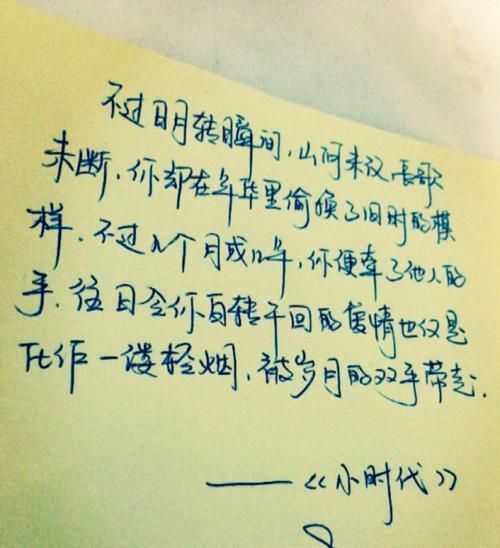 不过日月转瞬间,山河未改,长歌
未断,你却在年华里偷换了旧时的模
样.不过几个月或几年,你便牵了他人的
手.往日令你百转千回的旧情也仅是
化作一缕轻烟,被岁月的双手带走.
——《小时代》